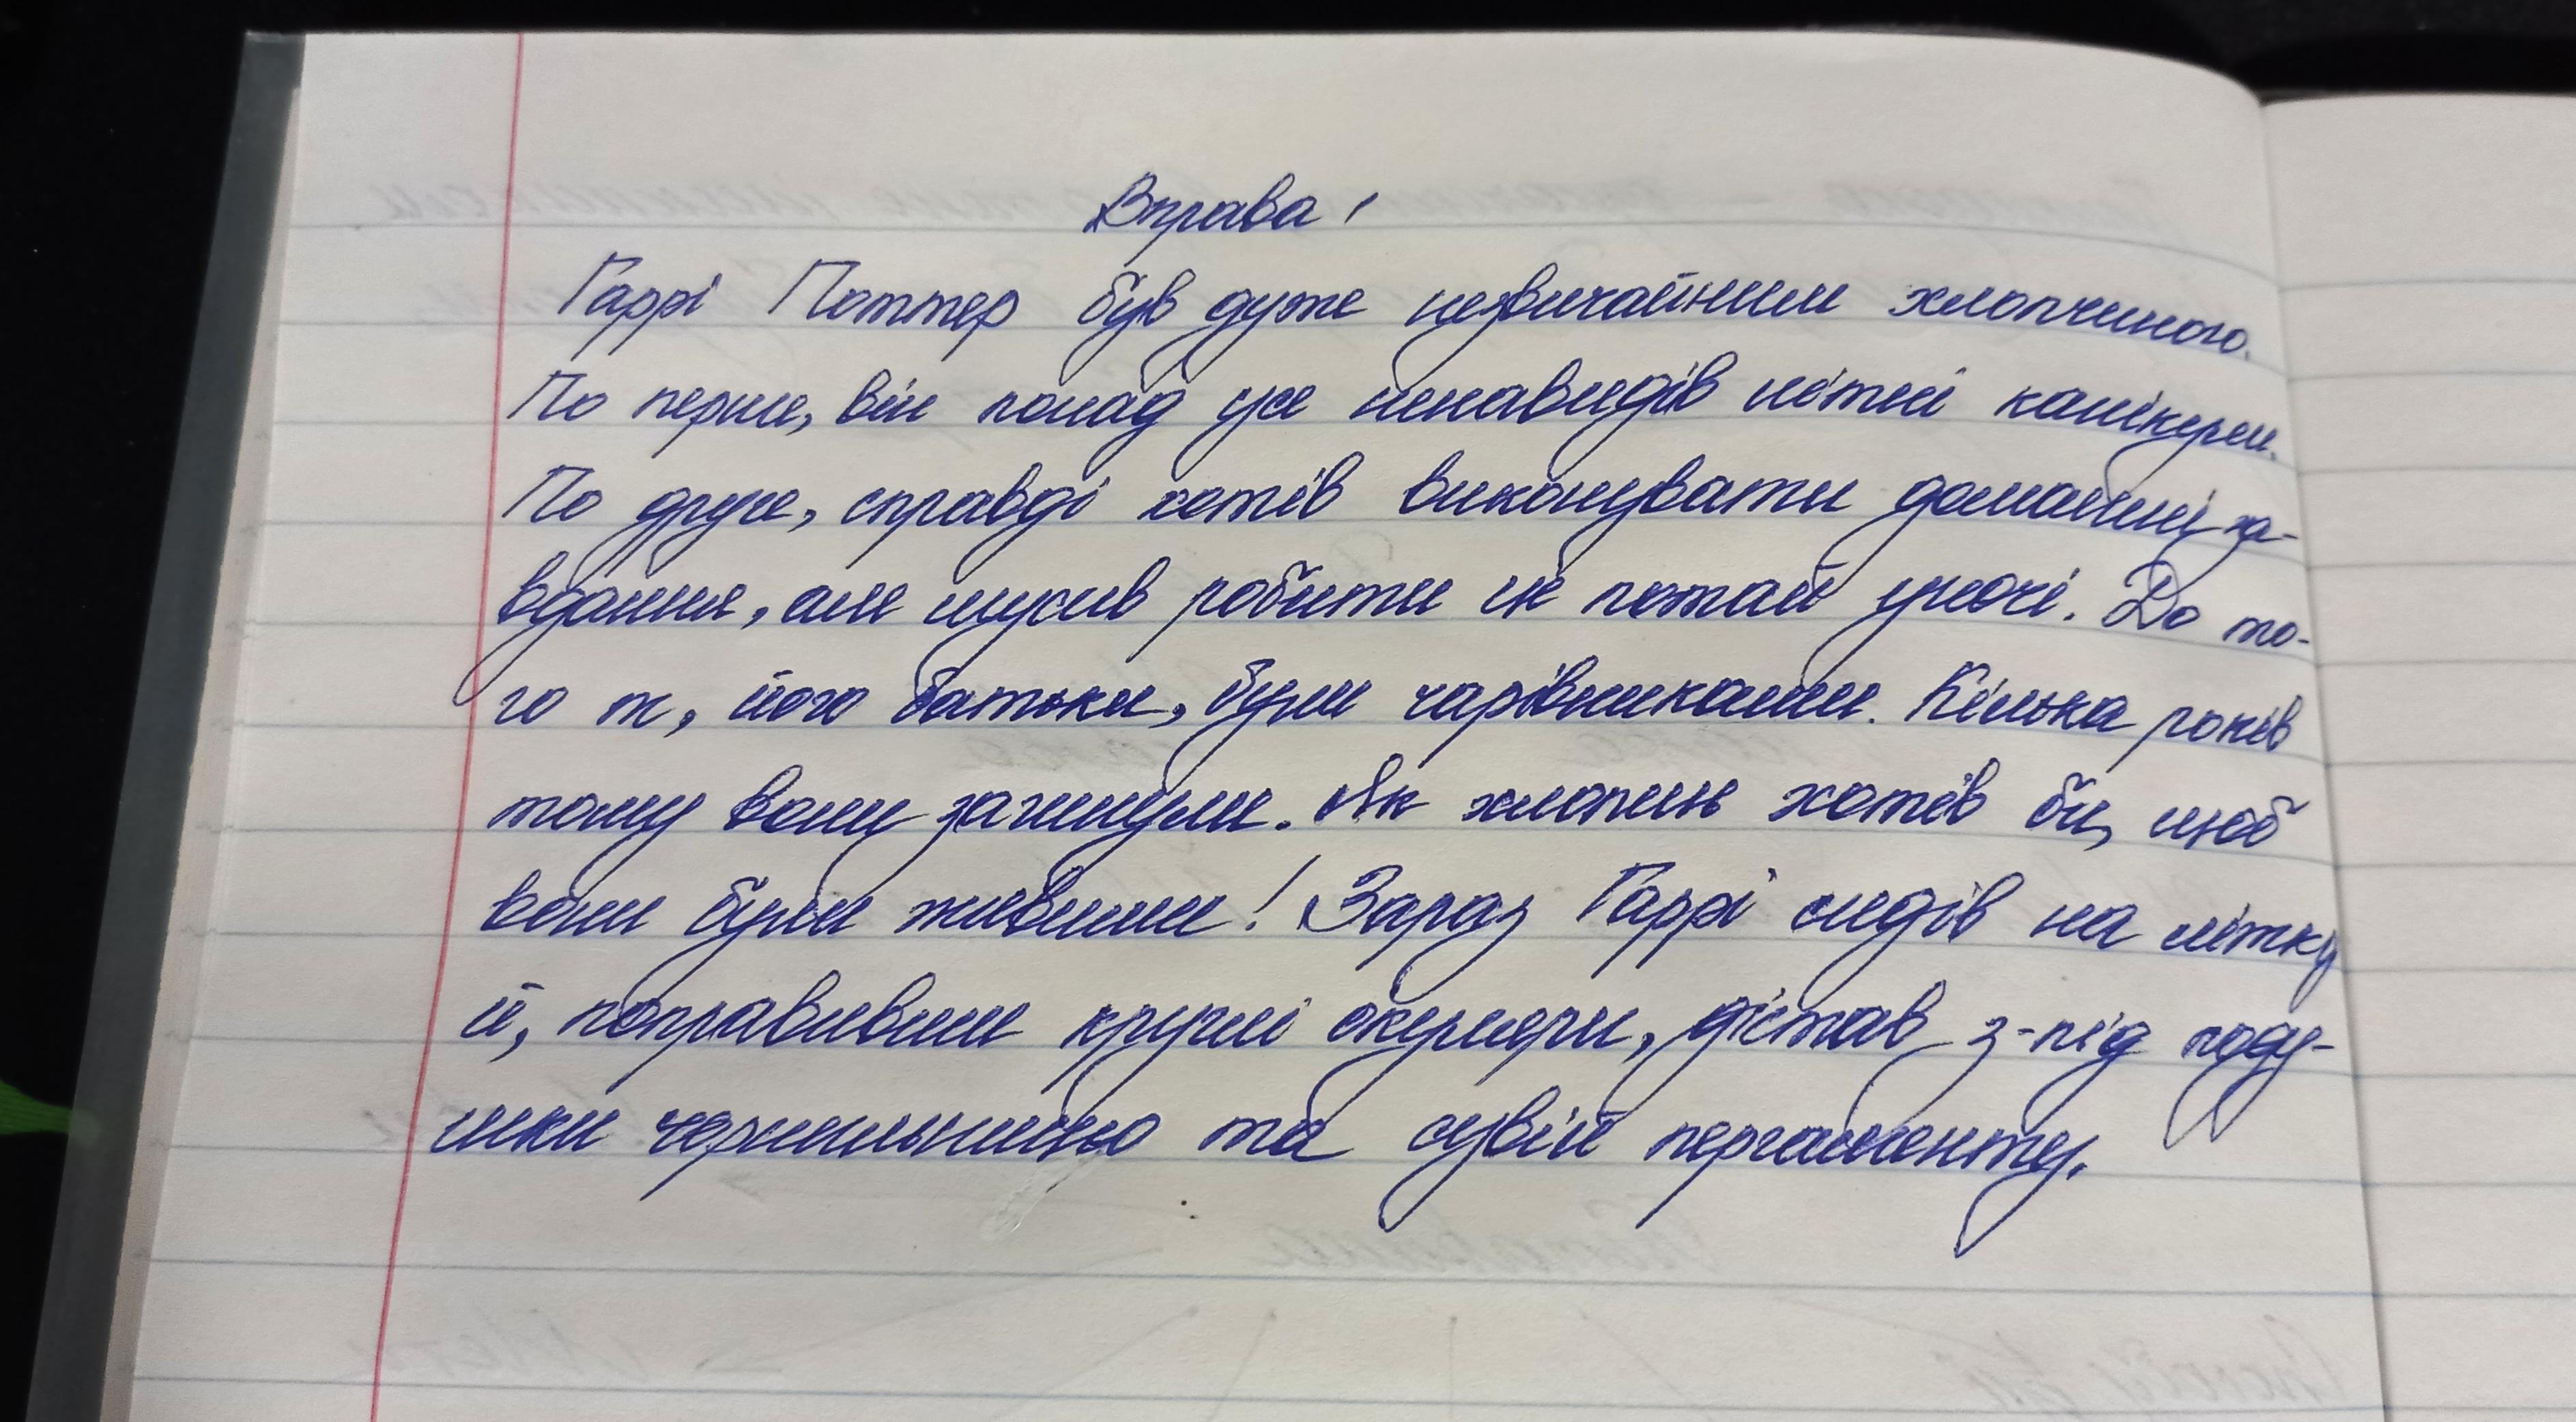 Вправа 1
Гаррі Поттер був дуже незвичайним хлопчиною.
По перше, він понад усе ненавидів літні канікули.
По друге, справді хотів виконувати домашні за-
вдання, але мусив робити їх потай уночі. До то-
го ж, його батьки, були чарівниками. Кілька років
тому вони загинули. Як хлопець хотів би, щоб
вони були живими! Зараз Гаррі сидів на ліжку
й, поправивши круглі окуляри, дістав з-під поду-
шки чернильницю та сувій пергаменту.